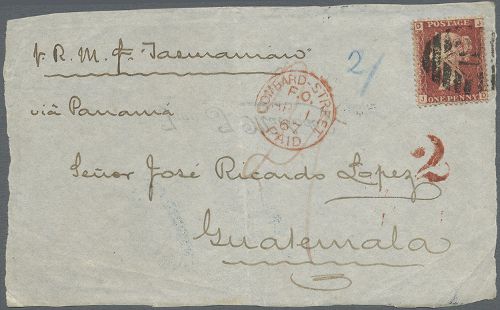 p. R. M. S. "Tasmanian"
2/
POSTAGE
ONE PENNY
LOMBARD-STREET
F.O.
PAID
viâ Panamá
2
Señor José Ricardo Lopez
Guatemala